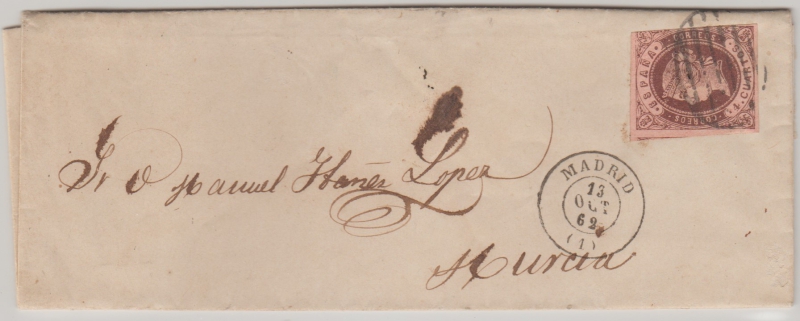 ESPAÑA
4 CUARTOS
CORREOS
Sr D Manuel Ibañez Lopez
MADRID
13
OCT
62
(1)
Murcia